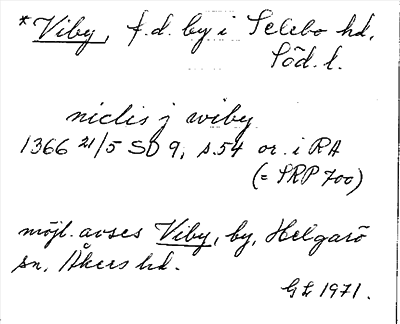 *Viby, f.d. by i Selebo hd,
Söd. l.
niclis j wiby
1366 21/5 SD 9, s.54 or. i RA
(= SRP 700)
möjl. avses Viby, by, Helgarö
sn, Åkers hd.
GL 1971.